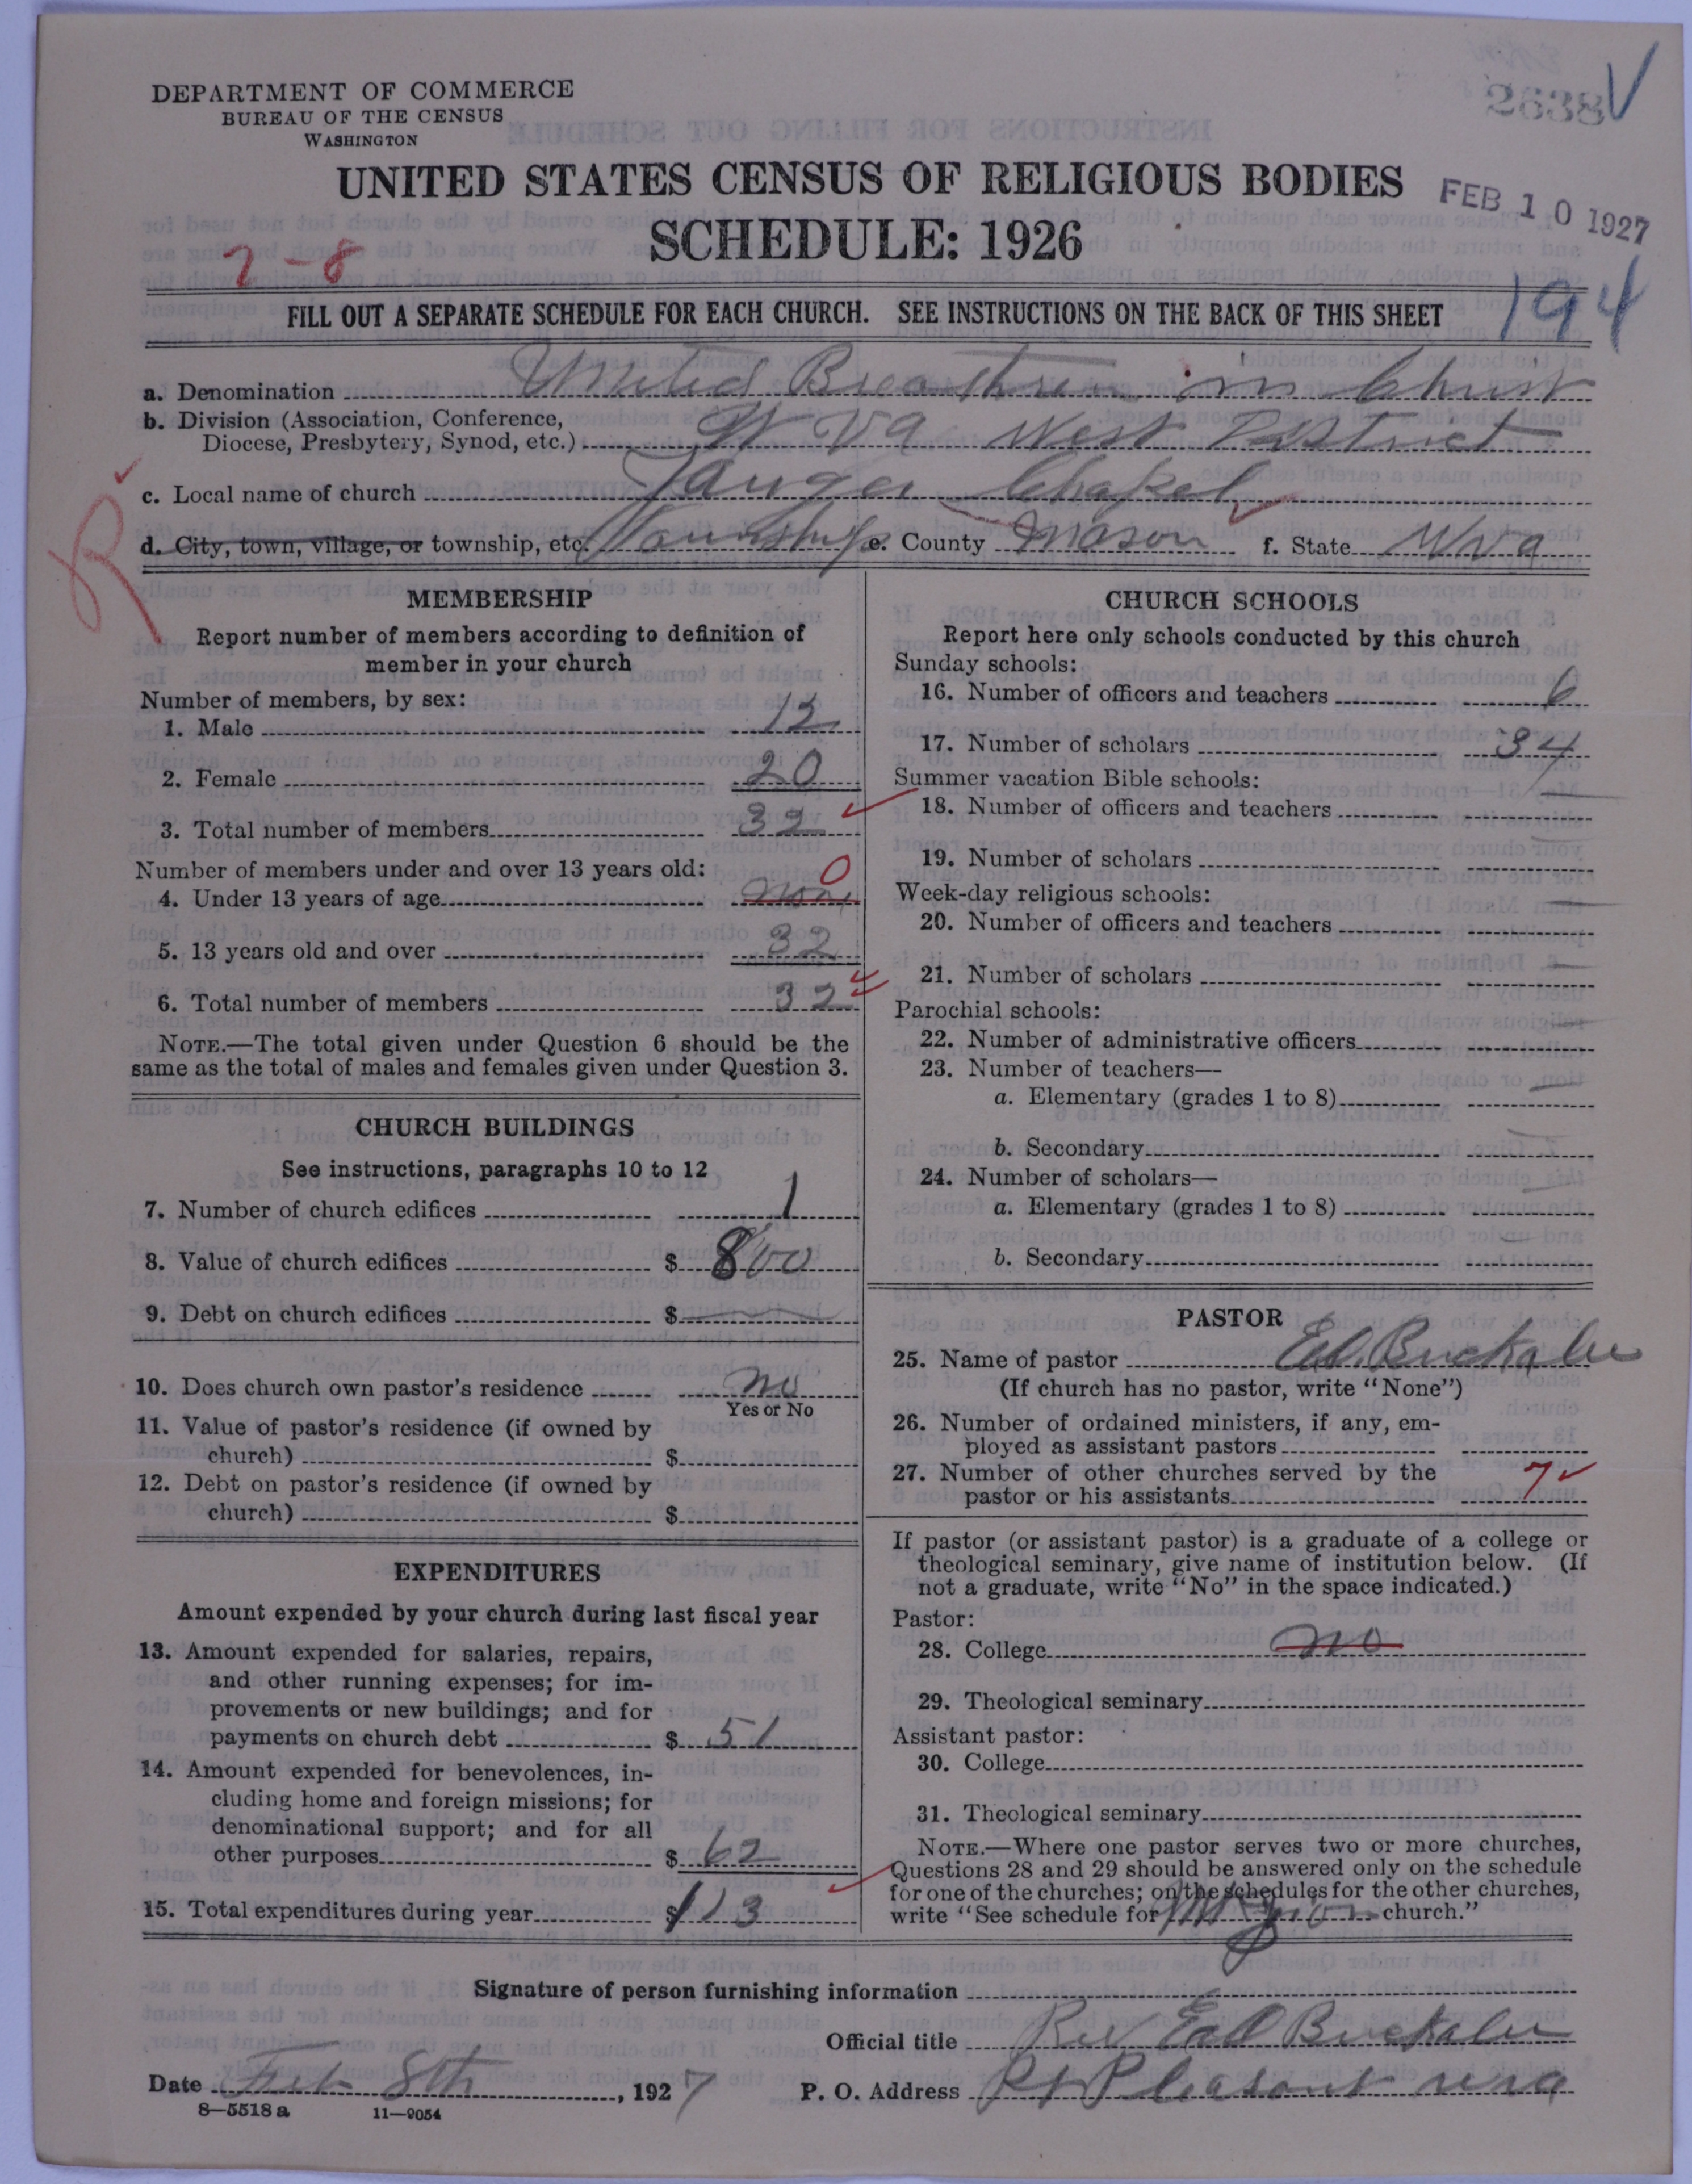 DEPARTMENT OF COMMERCE
BUREAU OF THE CENSUS
WASHINGTON
2638
UNITED STATES CENSUS OF RELIGIOUS BODIES
FEB 10 1927
SCHEDULE: 1926
7-8
194
FILL OUT A SEPARATE SCHEDULE FOR EACH CHURCH. SEE INSTRUCTIONS ON THE BACK OF THIS SHEET
a. Denomination United Breathren in Christ
b. Division (Association, Conference,
Diocese, Presbytery, Synod, etc.) W Va West District
c. Local name of church Chapel
R
d. City, town, village, or township, etc. Township e. County Mason f. State W Va
MEMBERSHIP
Report number of members according to definition of
member in your church
Number of members, by sex:
1. Male 12
2. Female 20
3. Total number of members 32
Number of members under and over 13 years old:
0
4. Under 13 years of age non
5. 13 years old and over 32
6. Total number of members 32
NOTE.—The total given under Question 6 should be the
same as the total of males and females given under Question 3.
CHURCH BUILDINGS
See instructions, paragraphs 10 to 12
7. Number of church edifices 1
8. Value of church edifices $ 800
9. Debt on church edifices $
10. Does church own pastor's residence no
Yes or No
11. Value of pastor's residence (if owned by
church) $
12. Debt on pastor's residence (if owned by
church) $
EXPENDITURES
Amount expended by your church during last fiscal year
13. Amount expended for salaries, repairs,
and other running expenses; for im-
provements or new buildings; and for
payments on church debt $ 51
14. Amount expended for benevolences, in-
cluding home and foreign missions; for
denominational support; and for all
other purposes $ 62
15. Total expenditures during year $ 113
CHURCH SCHOOLS
Report here only schools conducted by this church
Sunday schools:
16. Number of officers and teachers 6
17. Number of scholars 34
Summer vacation Bible schools:
18. Number of officers and teachers
19. Number of scholars
Week-day religious schools:
20. Number of officers and teachers
21. Number of scholars
Parochial schools:
22. Number of administrative officers
23. Number of teachers—
a. Elementary (grades 1 to 8)
b. Secondary
24. Number of scholars—
a. Elementary (grades 1 to 8)
b. Secondary
PASTOR
25. Name of pastor Ed. Buckalew
(If church has no pastor, write "None")
26. Number of ordained ministers, if any, em-
ployed as assistant pastors
27. Number of other churches served by the
pastor or his assistants 7
If pastor (or assistant pastor) is a graduate of a college or
theological seminary, give name of institution below. (If
not a graduate, write "No" in the space indicated.)
Pastor:
28. College no
29. Theological seminary
Assistant pastor:
30. College
31. Theological seminary
NOTE.—Where one pastor serves two or more churches,
Questions 28 and 29 should be answered only on the schedule
for one of the churches; on the schedules for the other churches,
write "See schedule for Mt Zion church."
Signature of person furnishing information
Official title Rev Ed Buckalew
Date Feb 8th, 1927 P. O. Address Pt Pleasant W Va
8—5518a 11—9054